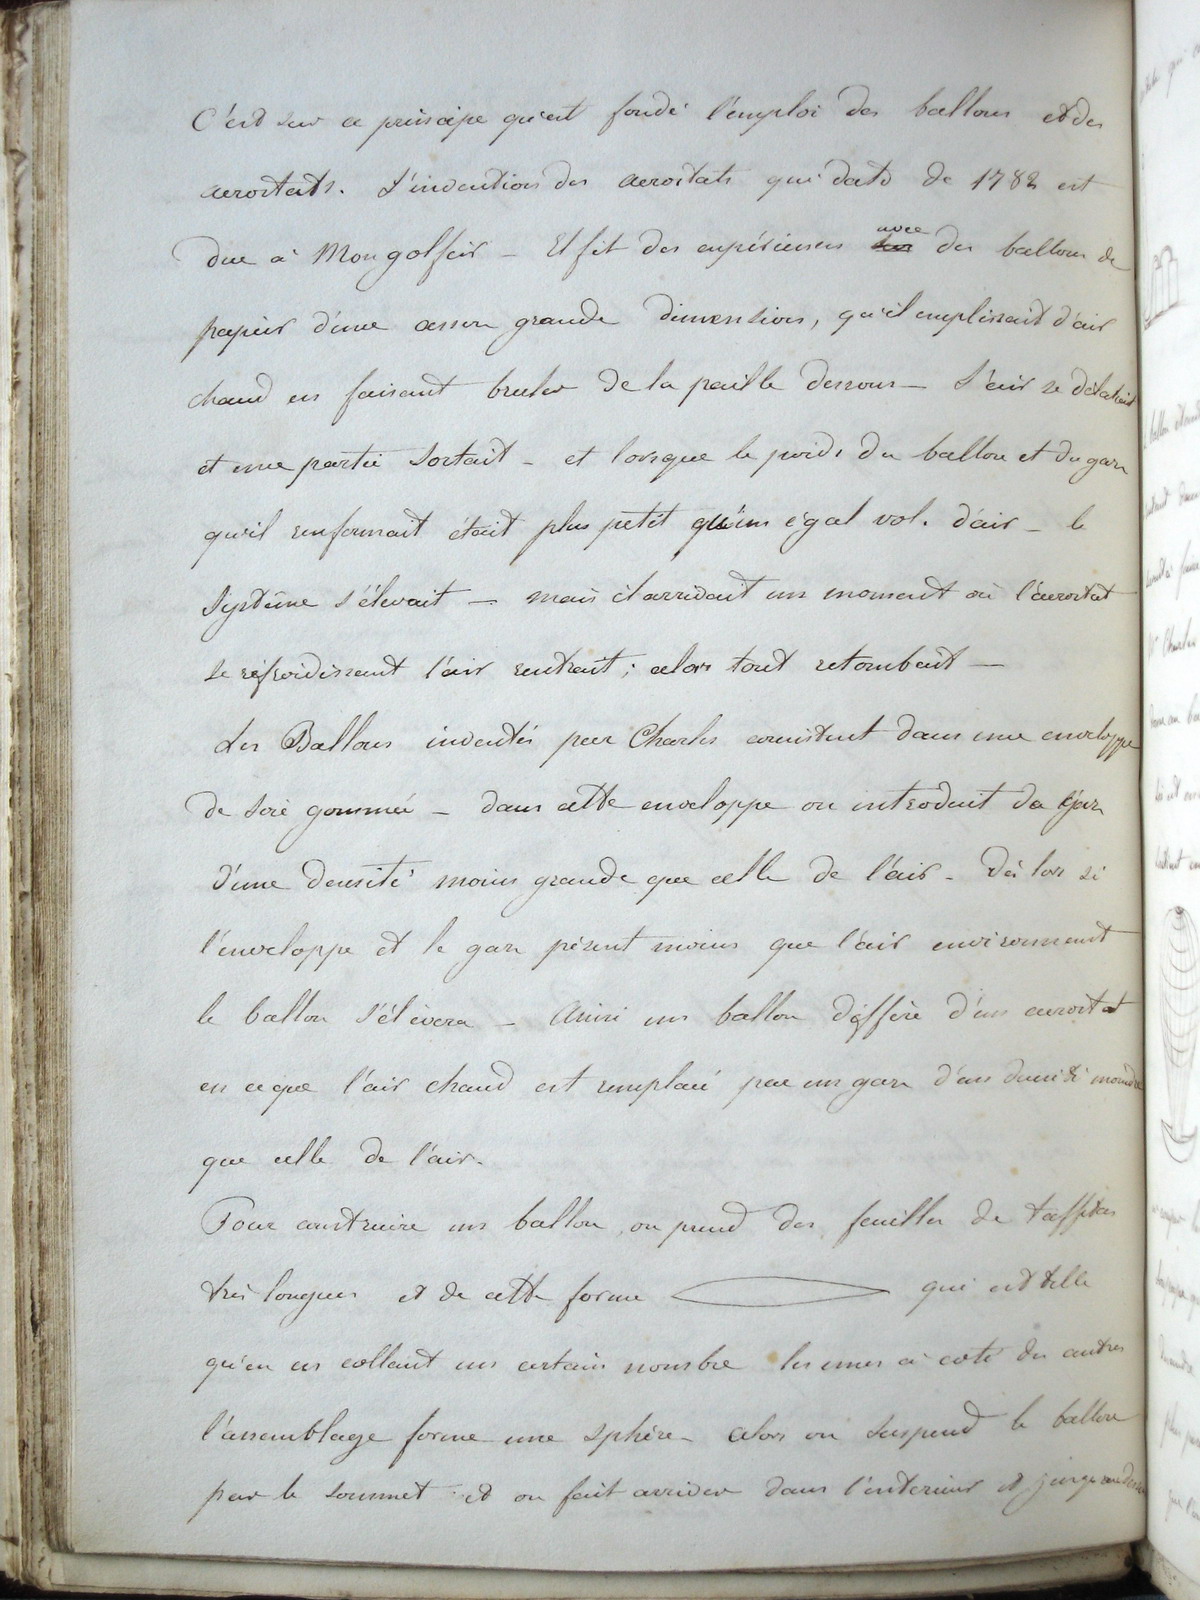 C'est sur ce principe qu'est fondé l'emploi des ballons et des
aerostats. L'invention des aerostats qui date de 1782 est
due à Mongolfeir - Il fit des expériences avec des ballons de
papier d'une assez grande dimension, qu'il emplissait d'air
chaud en faisant bruler de la paille dessous - L'air se dilatait
et une partie sortait - et lorsque le poids du ballon et du gaz
qu'il renfermait était plus petit qu'un égal vol. d'air - le
système s'élevait - mais il arrivait un moment où l'aerostat
se refroidissant l'air rentrait; alors tout retombait -
Les Ballons inventés par Charles consistent dans une enveloppe
de soie gommée - dans cette enveloppe on introduit du gaz
d'une densité moins grande que celle de l'air - Dès lors si
l'enveloppe et le gaz pèsent moins que l'air environnant
le ballon s'élèvera - Ainsi un ballon diffère d'un aerostat
en ce que l'air chaud est remplacé par un gaz d'une densité moindre
que celle de l'air.
Pour construire un ballon, on prend des feuilles de taffetas
très longues et de cette forme qui est telle
qu'en en collant un certain nombre les unes à coté des autres
l'assemblage forme une sphère - alors on suspend le ballon
par le sommet et on fait arriver dans l'interieur et
ballon
Mr Charles